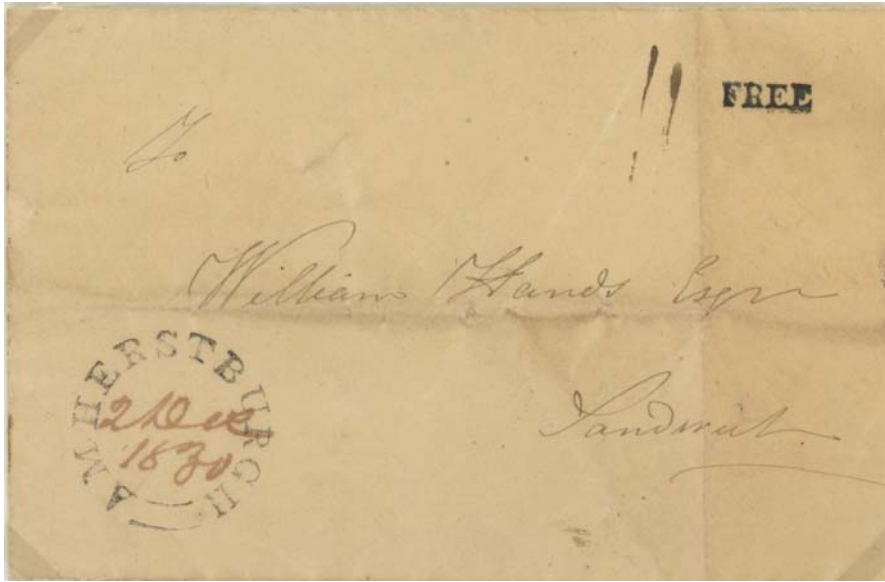 FREE
To
William Hands Esqr
Sandwich
AMHERSTBURGH
2 Dec
1830